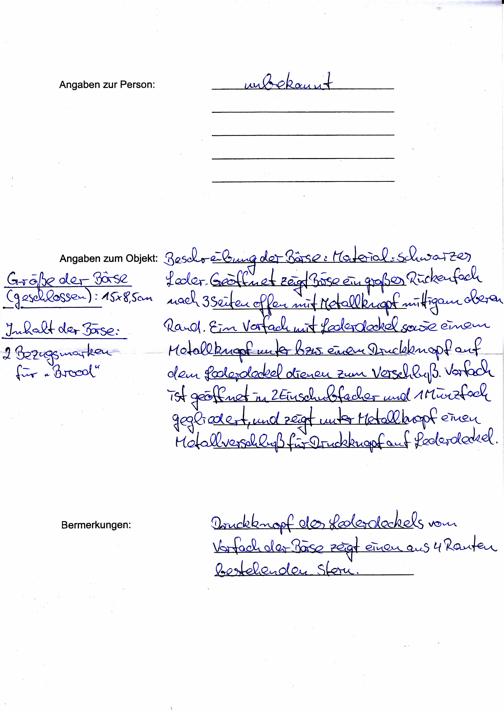 Angaben zur Person: unbekannt
Angaben zum Objekt: Beschreibung der Börse: Material: schwarzes
Leder. Geöffnet zeigt Börse ein großes Rückenfach
nach 3 Seiten offen mit Metallknopf mittig am oberen
Rand. Ein Vorfach mit Lederdeckel sowie einem
Metallknopf unter bzw. einem Druckknopf auf
dem Lederdeckel dienen zum Verschluß. Vorfach
ist geöffnet in 2 Einschubfächer und 1 Münzfach
gegliedert, und zeigt unter Metallknopf einen
Metallverschluß für Druckknopf auf Lederdeckel.
Größe der Börse
(geschlossen): 15x8,5cm
Inhalt der Börse:
2 Bezugsmarken
für "Brood"
Bermerkungen: Druckknopf des Lederdeckels vom
Vorfach der Börse zeigt einen aus 4 Rauten
bestehenden Stern.